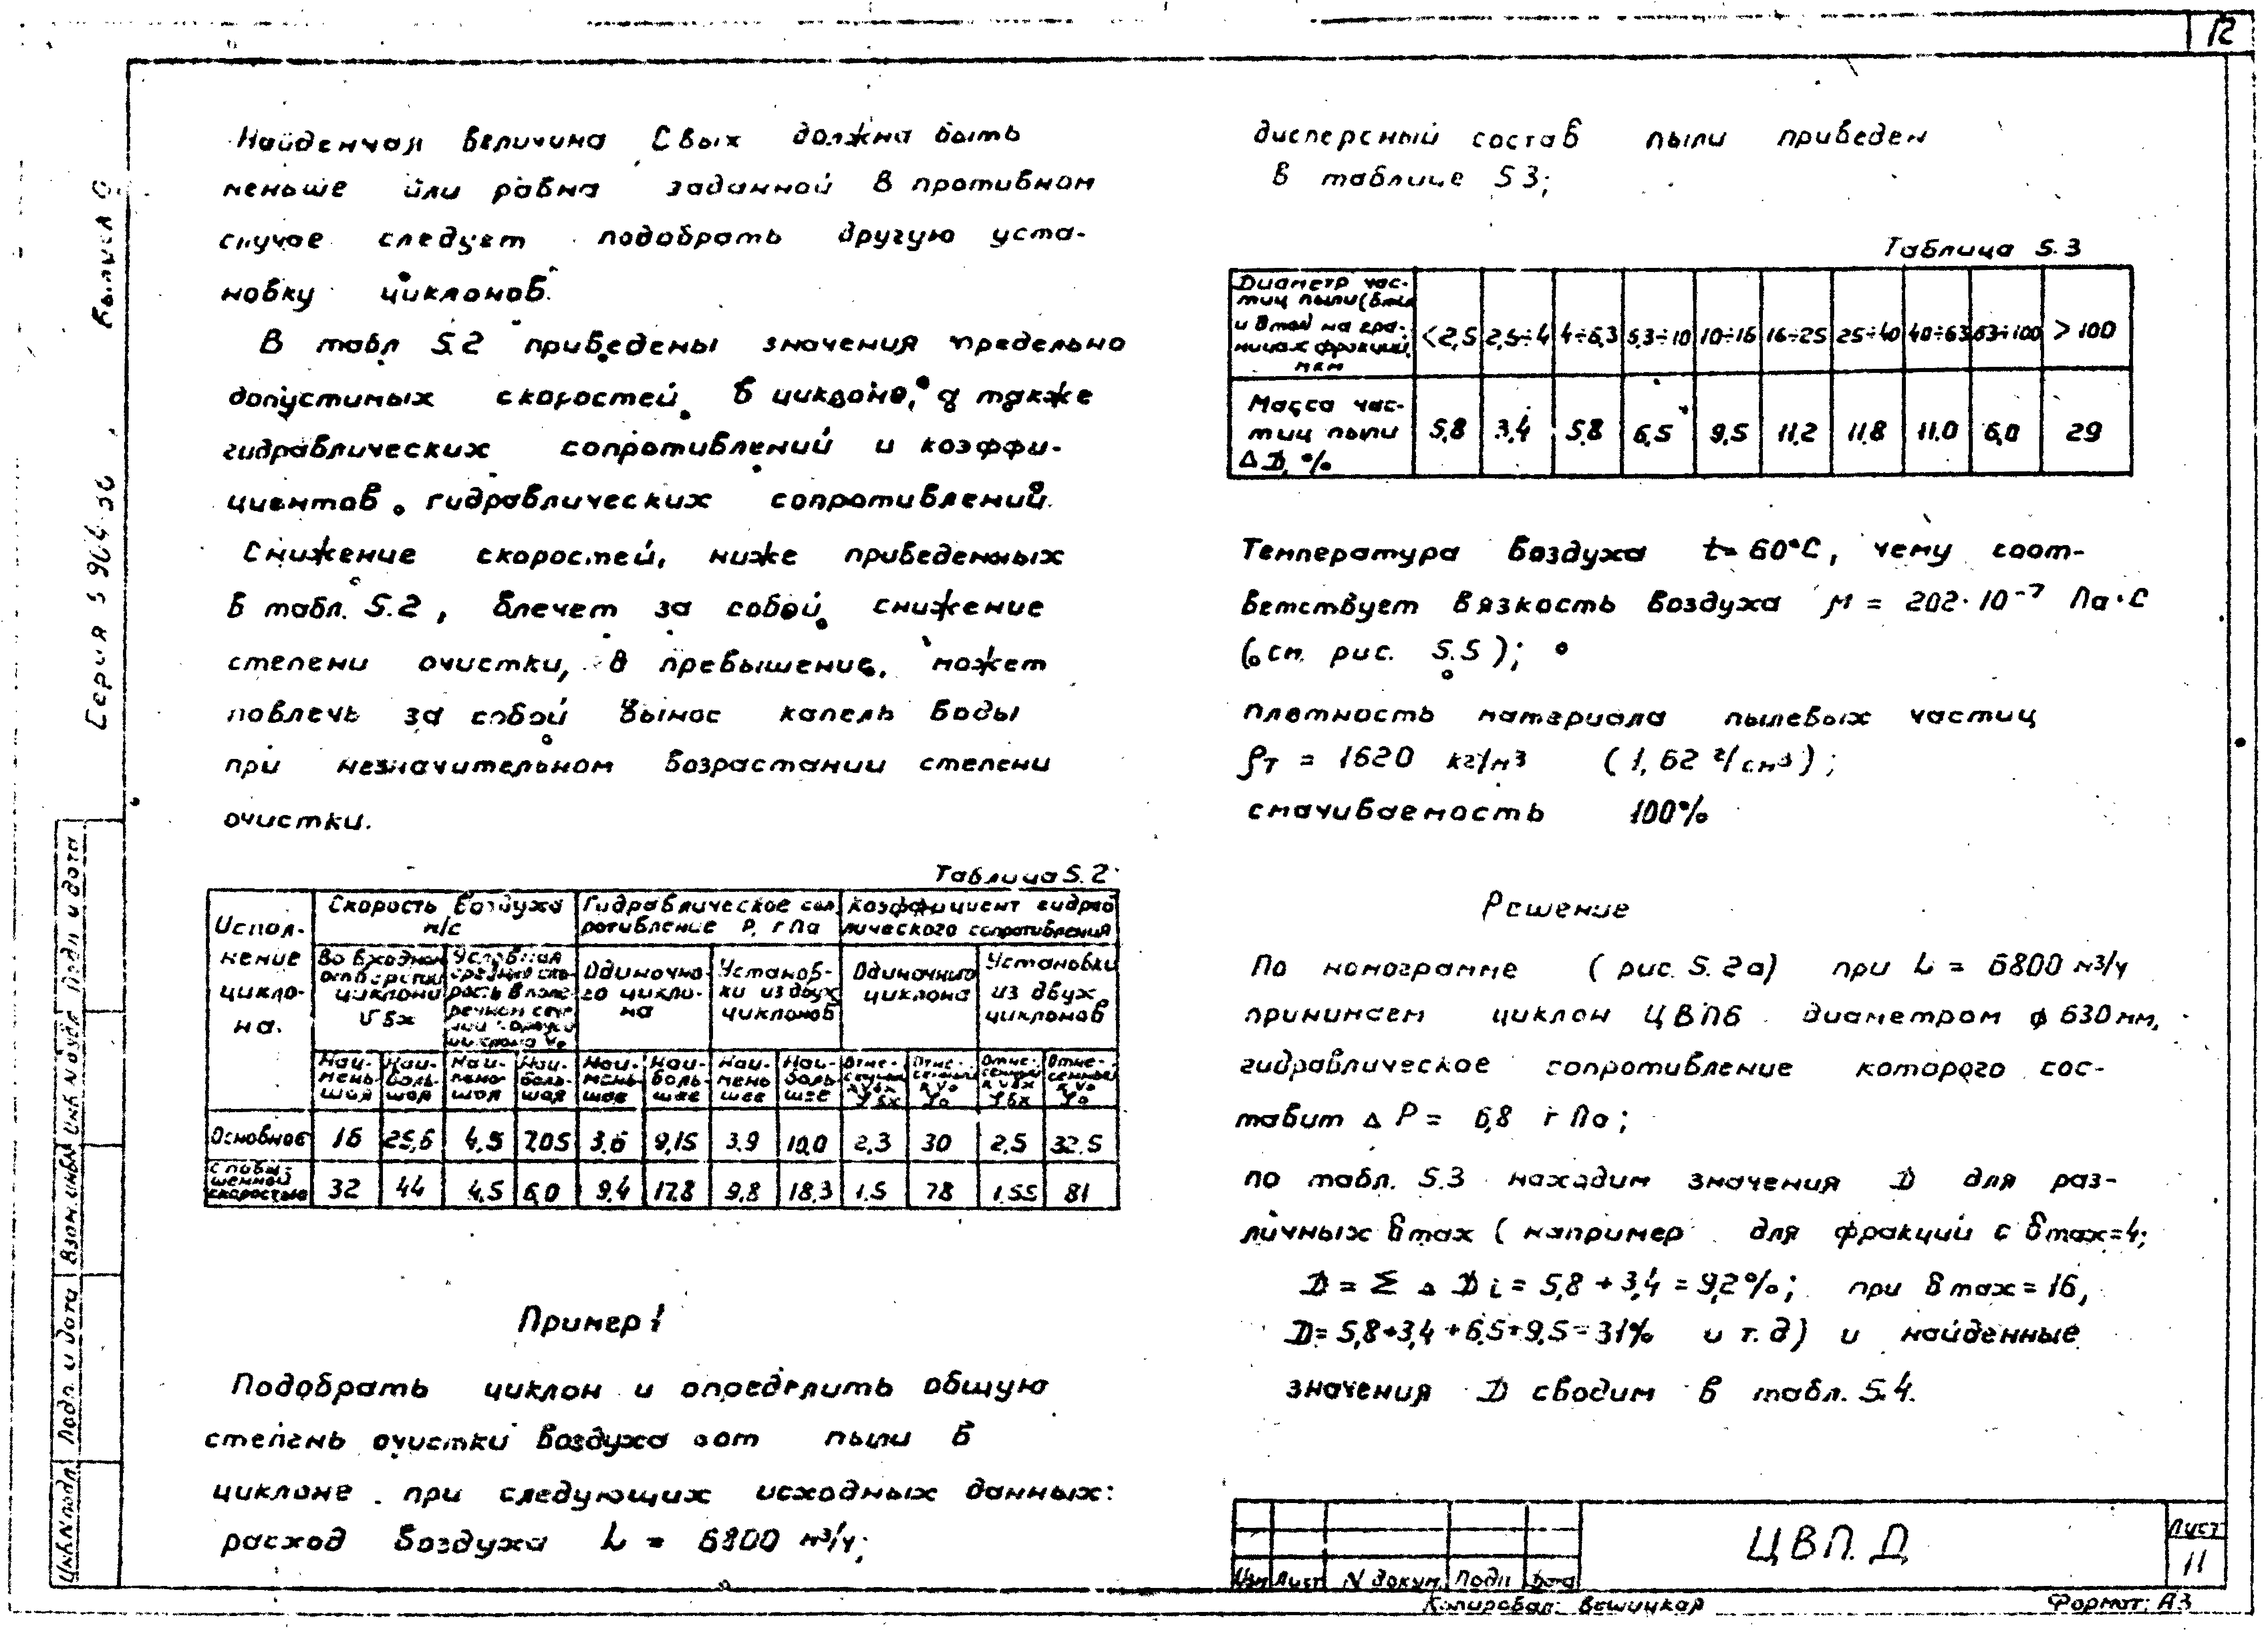 12
Найденная величина Свых должна быть
меньше или равна заданной В противном
случае следует подобрать другую уста-
новку циклонов.
В табл 5.2 приведены значения предельно
допустимых скоростей в циклоне, а также
гидравлических сопротивлений и коэффи-
циентов гидравлических сопротивлений.
Снижение скоростей, ниже приведенных
в табл. 5.2, влечет за собой снижение
степени очистки, а превышение, может
повлечь за собой вынос капель воды
при незначительном возрастании степени
очистки.
Таблица 5.2
Испол-
нение
цикло-
на.
Скорость воздуха
м/с
Гидравлическое соп-
ротивление P, гПа
Коэффициент гидрав
лического сопротивления
Во входном
отверстии
циклона
Vвх
Условная
средняя ско-
рость в попе-
речном сече-
нии корпуса
циклона Vo
Одиночно-
го цикло-
на
Установ-
ки из двух
циклонов
Одиночного
циклона
Установки
из двух
циклонов
Наи-
мень
шая
Наи-
боль-
шая
Наи-
мень-
шая
Наи-
боль-
шая
Наи-
мень-
шее
Наи-
боль-
шее
Наи-
мень
шее
Наи-
боль-
шее
Отне-
сенный
к Vвх
ζвх
Отне-
сенный
к Vo
ζo
Отне-
сенный
к Vвх
ζвх
Отне-
сенный
к Vo
ζo
Основное 16 25,6 4,5 7,05 3,6 9,15 3,9 10,0 2,3 30 2,5 32.5
с повы-
шенной
скоростью 32 44 4,5 6,0 9,4 17,8 9,8 18,3 1.5 78 1.55 81
Пример 1
Подобрать циклон и определить общую
степень очистки воздуха от пыли в
циклоне при следующих исходных данных:
расход воздуха L = 6800 м³/ч;
дисперсный состав пыли приведен
в таблице 5 3;
Таблица 5.3
Диаметр час-
тиц пыли (δmin
и δmax) на гра-
ницах фракций,
мкм
<2,5 2,5÷4 4÷6,3 6,3÷10 10÷16 16÷25 25÷40 40÷63 63÷100 >100
Масса час-
тиц пыли
Δ D, %
5,8 3,4 5,8 6,5 9,5 11,2 11,8 11.0 6,0 29
Температура воздуха t= 60°С, чему соот-
ветствует вязкость воздуха μ = 202·10⁻⁷ Па·С
(см. рис. 5.5);
плотность материала пылевых частиц
ρт = 1620 кг/м³ (1,62 г/см³);
смачиваемость 100%
Решение
По номограмме (рис. 5.2а) при L = 6800 м³/ч
принимаем циклон ЦВП6 диаметром ф 630 мм,
гидравлическое сопротивление которого сос-
тавит Δ P = 6,8 гПа;
по табл. 5.3 находим значения D для раз-
личных δmax (например для фракций с δmax=4;
D = Σ Δ Di = 5,8 + 3,4 = 9,2%; при δmax = 16,
D= 5,8+3,4+6,5+9,5=31% и т.д) и найденные
значения D сводим в табл. 5.4.
Серия 5 904
Выпуск 0
Подп и дата
Инв N дубл
Взам. инв N
Подп. и дата
Инв N подл
Изм Лист N докум. Подп Дата
ЦВП. Д
Лист
11
Копировал: Вешицкая
Формат: А3